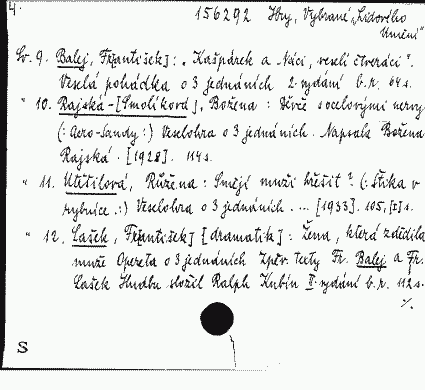 4.
156292 Hry, Vybrané „Lidového
Umění"
Sv. 9. Balej, Fr[antišek]: „Kašpárek a Náci, veselí čtveráci".
Veselá pohádka o 3 jednáních 2. vydání b.r. 64 s.
" 10. Rajská-[Smolíková], Božena: Děvče s ocelovými nervy
(: Aero-Sandy :) Veselohra o 3 jednáních. Napsala Božena
Rajská. [1928]. 114 s.
" 11. Utěšilová, Růžena: Smějí muži hřešit? (: Štika v
rybníce :) Veselohra o 3 jednáních. ... [1933]. 105, [I] s.
" 12. Lašek, Fr[antišek] [dramatik]: Žena, která zdědila
muže Opereta o 3 jednáních Zpěv. texty Fr. Balej a Fr.
Lašek Hudbu složil Ralph Kubín II. vydání b.r. 112 s.
./.
S